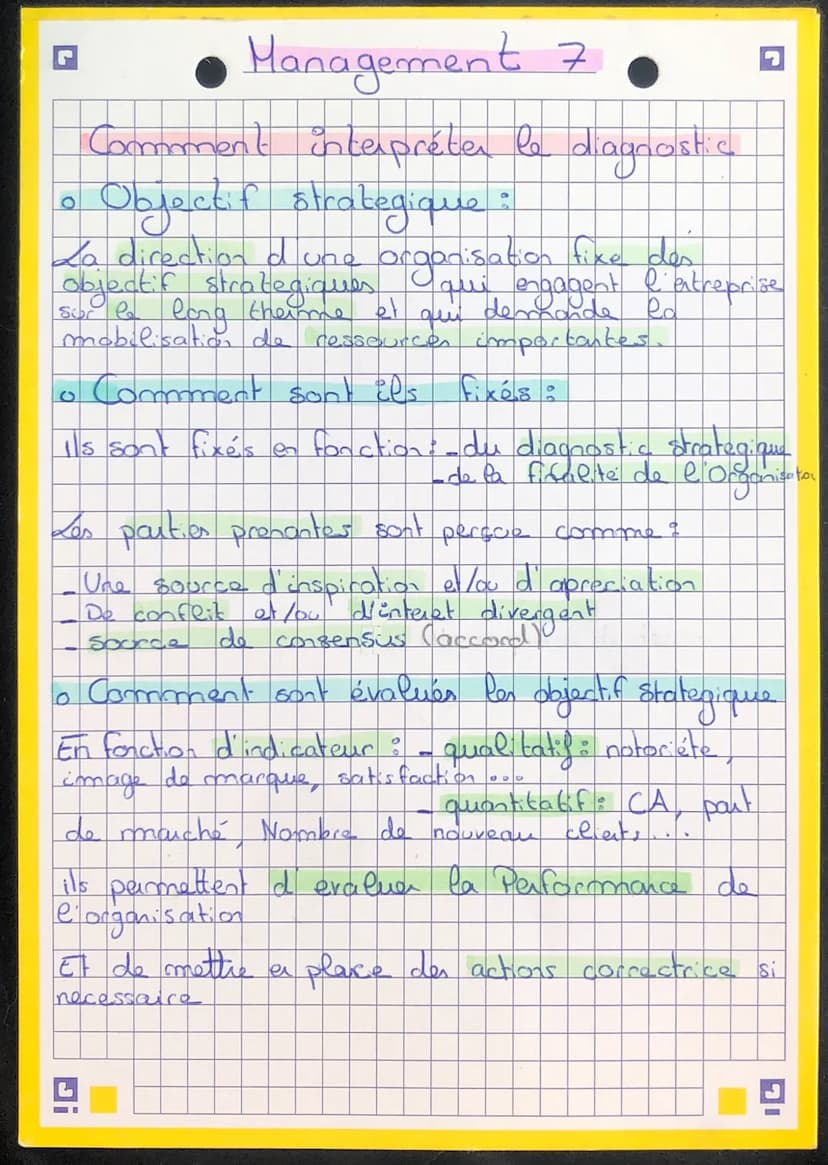 Management 7
Commment interpréter le diagnostic
o Objectif strategique :
La direction d'une organisation fixe des
objectif strategiques qui engagent l'entreprise
sur le long therme et qui demande la
mobilisation de ressources importantes.
o Commment sont ils fixés :
ils sont fixés en fonction : - du diagnostic strategique
- de la finalité de l'organisation
Les parties prenantes sont perçue comme :
- Une source d'inspiration et/ou d'apreciation
- De conflit et/ou d'interet divergent
- source de consensus (accord)
o Commment sont évalués les objectif stategique
En fonction d'indicateur : - qualitatif : notoriéte,
image de marque, satisfaction ...
- quantitatif : CA, part
de marché, Nombre de nouveau clients...
ils permettent d'evaluer la Performance de
l'organisation
Et de mettre en place des actions correctrice si
necessaire